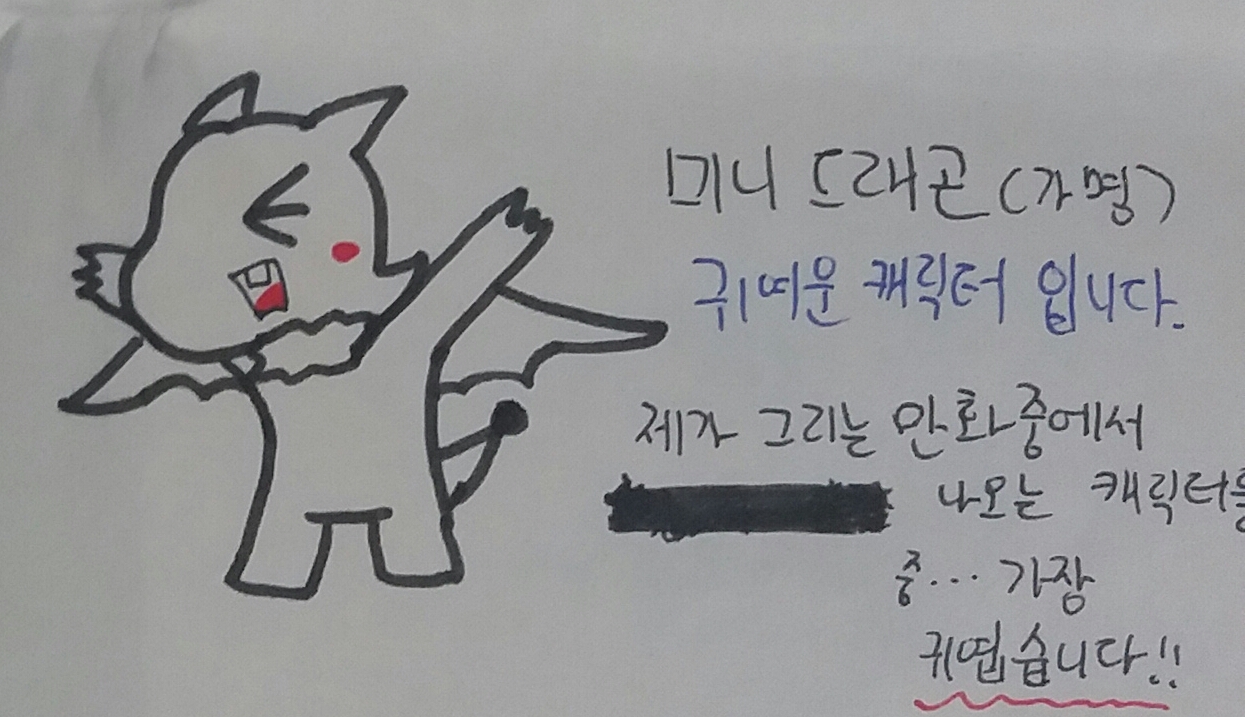 미니 드래곤 (가명)
귀여운 캐릭터 입니다.
제가 그리는 만화중에서
나오는 캐릭터들
중... 가장
귀엽습니다!!